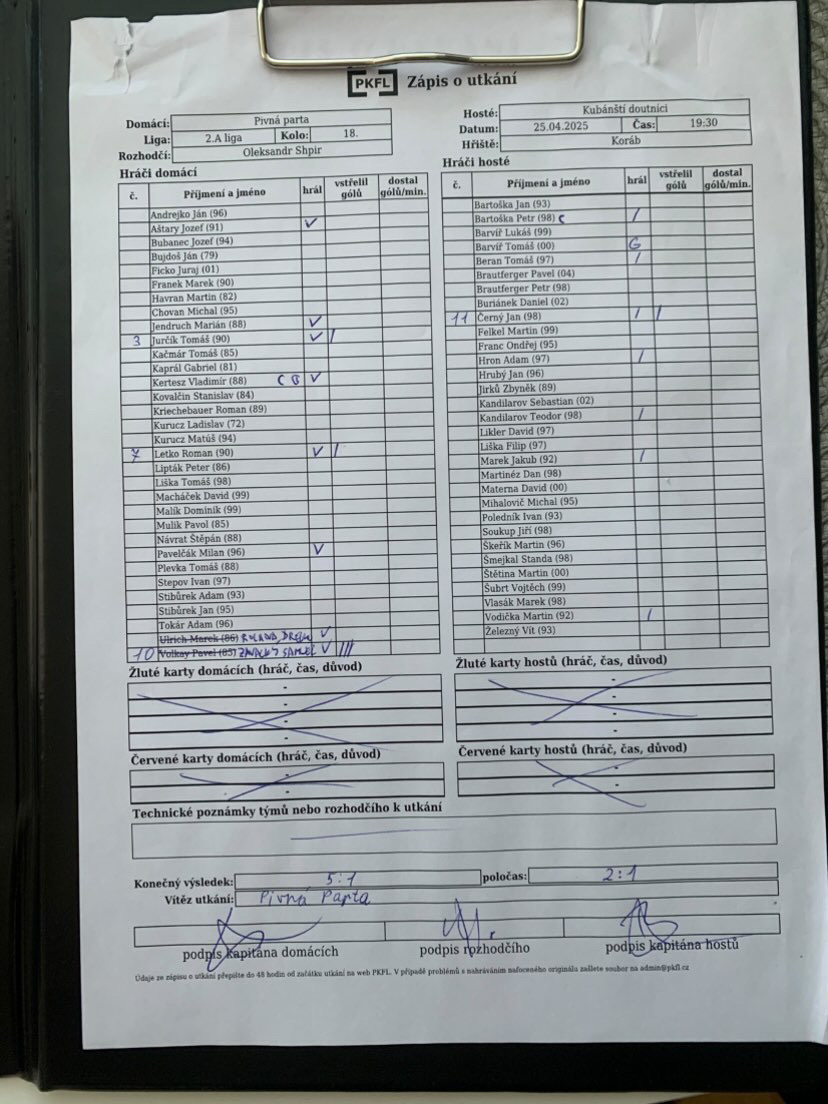 PKFL Zápis o utkání
Domácí: Pivná parta
Liga: 2.A liga Kolo: 18.
Rozhodčí: Oleksandr Shpir
Hosté: Kubánští doutníci
Datum: 25.04.2025 Čas: 19:30
Hřiště: Koráb
Hráči domácí
č. Příjmení a jméno hrál vstřelil gólů dostal gólů/min.
Andrejko Ján (96)
Aštary Jozef (91) V
Bubanec Jozef (94)
Bujdoš Ján (79)
Ficko Juraj (01)
Franek Marek (90)
Havran Martin (82)
Chovan Michal (95)
Jendruch Marián (88) V
3 Jurčík Tomáš (90) V /
Kačmár Tomáš (85)
Kaprál Gabriel (81)
Kertesz Vladimír (88) C B V
Kovalčin Stanislav (84)
Kriechebauer Roman (89)
Kurucz Ladislav (72)
Kurucz Matúš (94)
7 Letko Roman (90) V /
Lipták Peter (86)
Liška Tomáš (98)
Macháček David (99)
Malík Dominik (99)
Mulik Pavol (85)
Návrat Štěpán (88)
Pavelčák Milan (96) V
Plevka Tomáš (88)
Stepov Ivan (97)
Stibůrek Adam (93)
Stibůrek Jan (95)
Tokár Adam (96)
Ulrich Marek (86) V
10 Volkay Pavel (85) V ///
Hráči hosté
č. Příjmení a jméno hrál vstřelil gólů dostal gólů/min.
Bartoška Jan (93)
Bartoška Petr (98) C /
Barvíř Lukáš (99)
Barvíř Tomáš (00) G
Beran Tomáš (97) /
Brautferger Pavel (04)
Brautferger Petr (98)
Buriánek Daniel (02)
11 Černý Jan (98) / /
Felkel Martin (99)
Franc Ondřej (95)
Hron Adam (97) /
Hrubý Jan (96)
Jirků Zbyněk (89)
Kandilarov Sebastian (02)
Kandilarov Teodor (98) /
Likler David (97)
Liška Filip (97)
Marek Jakub (92) /
Martinéz Dan (98)
Materna David (00)
Mihalovič Michal (95)
Poledník Ivan (93)
Soukup Jiří (98)
Škeřík Martin (96)
Šmejkal Standa (98)
Štětina Martin (00)
Šubrt Vojtěch (99)
Vlasák Marek (98)
Vodička Martin (92) /
Železný Vít (93)
Žluté karty domácích (hráč, čas, důvod)
-
-
-
-
Žluté karty hostů (hráč, čas, důvod)
-
-
-
-
Červené karty domácích (hráč, čas, důvod)
-
-
Červené karty hostů (hráč, čas, důvod)
-
-
Technické poznámky týmů nebo rozhodčího k utkání
Konečný výsledek: 5:1 poločas: 2:1
Vítěz utkání: Pivná Parta
podpis kapitána domácích podpis rozhodčího podpis kapitána hostů
Údaje ze zápisu o utkání přepište do 48 hodin od začátku utkání na web PKFL. V případě problémů s nahráváním nafoceného originálu zašlete soubor na admin@pkfl.cz